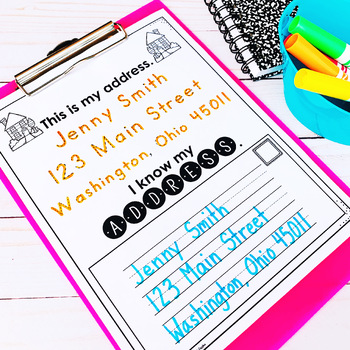 This is my address.
Jenny Smith
123 Main Street
Washington, Ohio 45011
I know my
ADDRESS.
Jenny Smith
123 Main Street
Washington, Ohio 45011